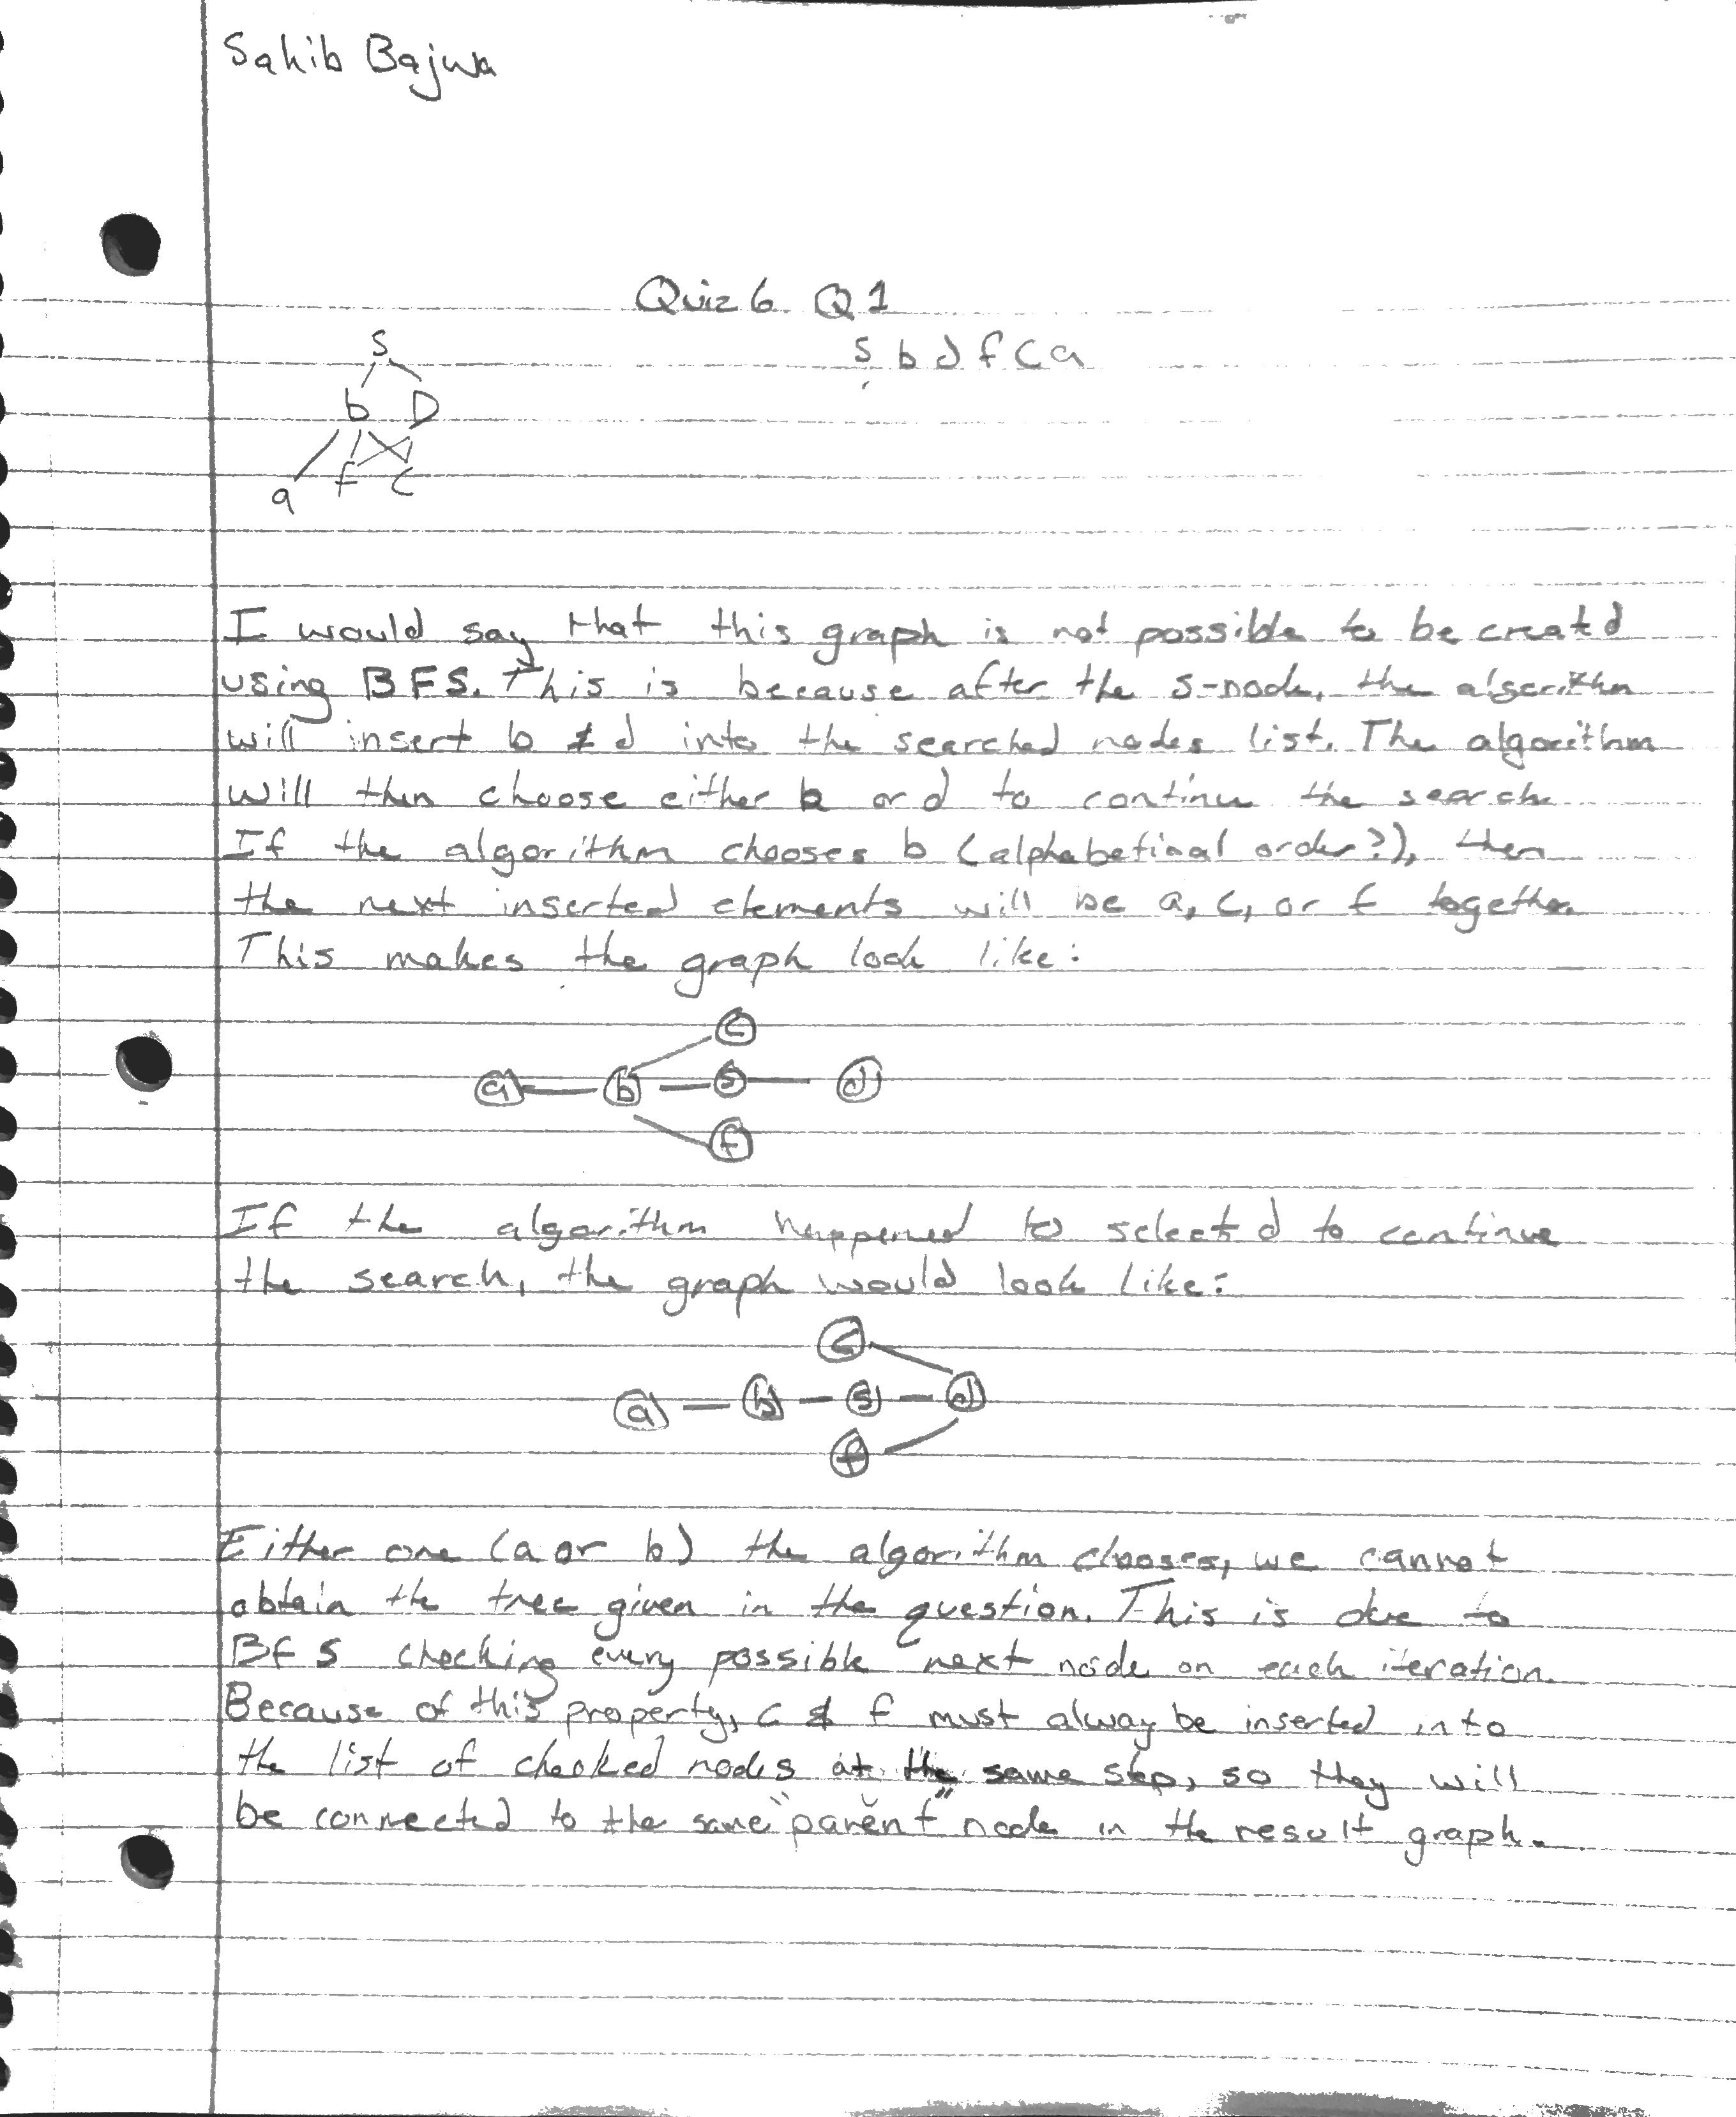 Sahib Bajwa
Quiz 6 Q1
s b d f c a
S
b D
a f c
I would say that this graph is not possible to be created
using BFS. This is because after the s-node, the algorithm
will insert b & d into the searched nodes list. The algorithm
will then choose either b or d to continue the search.
If the algorithm chooses b (alphabetical order?), then
the next inserted elements will be a, c, or f together.
This makes the graph look like:
c
a b s d
f
If the algorithm happened to select d to continue
the search, the graph would look like:
c
a b s d
f
Either one (a or b) the algorithm chooses, we cannot
obtain the tree given in the question. This is due to
BFS checking every possible next node on each iteration.
Because of this property, c & f must alway be inserted into
the list of checked nodes at the same step, so they will
be connected to the same "parent" node in the result graph.